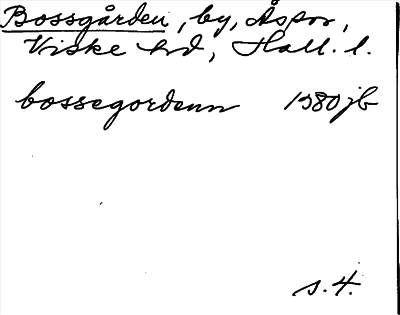 Bossgården, by, Åspor,
Viske hd, Hall. l.
bossegordenn 1580 jb
s. 4.